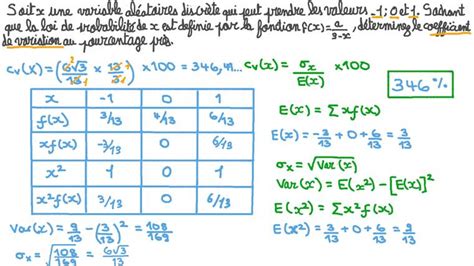 Soit x une variable aléatoires discrète qui peut prendre les valeurs -1; 0 et 1. Sachant
que la loi de probabilité de x est définie par la fonction f(x)=a/3-x, déterminez le coefficient
de variation au pourcentage près.
cv(X)=(6√3/13 × 13/3) ×100 = 346,41...
cv(x) = σx/E(x) ×100
346%
x -1 0 1
f(x) 3/13 4/13 6/13
xf(x) -3/13 0 6/13
x² 1 0 1
x²f(x) 3/13 0 6/13
E(x) = Σxf(x)
E(x) = -3/13 + 0 + 6/13 = 3/13
σx = √Var(x)
Var(x) = E(x²) - [E(x)]²
E(x²) = Σx²f(x)
E(x²) = 3/13 + 0 + 6/13 = 9/13
Var(x) = 9/13 - (3/13)² = 108/169
σx = √108/169 = 6√3/13